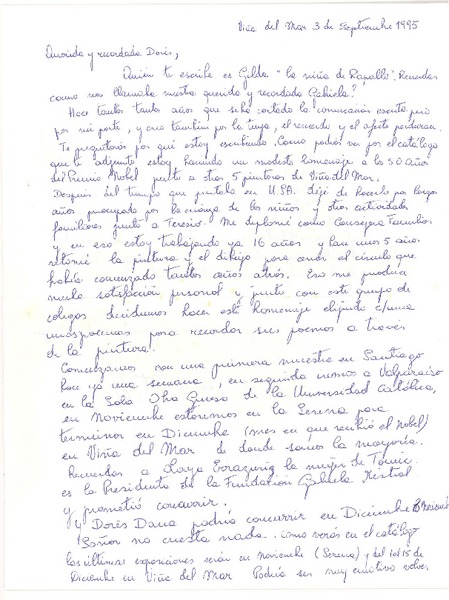 Viña del Mar 3 de Septiembre 1995
Querida y recordada Doris,
Quién te escribe es Gilda "la niña de Rapallo". Recuerdas
como nos llamaba nuestra querida y recordada Gabriela?
Hace tantos tantos años que se ha cortado la comunicación escrita pero
por mi parte, y creo también por la tuya, el recuerdo y el afecto perduran.
Te preguntarás por qué estoy escribiendo. Como podrás ver por el catálogo
que te adjunto estoy haciendo un modesto homenaje a los 50 años
del Premio Nobel junto a otras 5 pintoras de Viña del Mar.
Después del tiempo que pintaba en U.S.A. dejé de hacerlo por largos
años preocupada por la crianza de los niños y otras actividades
familiares junto a Teresio. Me diplomé como Consejera Familiar
y en eso estoy trabajando ya 16 años y hace unos 5 años
retomé la pintura y el dibujo para cerrar el círculo que
había comenzado tantos años atrás. Eso me produce
mucha satisfacción personal y junto con este grupo de
colegas decidimos hacer este homenaje eligiendo c/una
unos poemas para recordar sus poemas a través
de la pintura.
Comenzamos con una primera muestra en Santiago
hace ya una semana, en seguida vamos a Valparaíso
en la Sala de la Universidad Católica,
en Noviembre estaremos en La Serena para
terminar en Diciembre (mes en que recibió el Nobel)
en Viña del Mar de donde somos la mayoría.
Recuerdas a Olaya Errázuriz la mujer de Tomic
es la Presidenta de la Fundación Gabriela Mistral
y prometió concurrir.
Y Doris Dana podría concurrir en Diciembre o Noviembre
Soñar no cuesta nada. Como verás en el catálogo
las últimas exposiciones serán en Noviembre (Serena) y del 1 al 15 de
Diciembre en Viña del Mar Podría ser muy emotivo volver